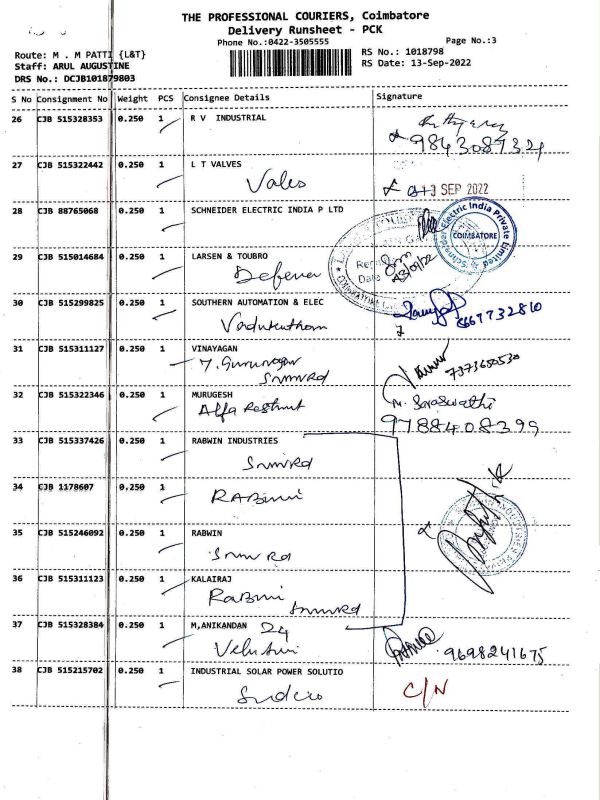 THE PROFESSIONAL COURIERS, Coimbatore
Delivery Runsheet - PCK
Phone No.:0422-3505555
Page No.:3
Route: M . M PATTI {L&T}
RS No.: 1018798
Staff: ARUL AUGUSTINE
RS Date: 13-Sep-2022
DRS No.: DCJB101879803
S No Consignment No Weight PCS Consignee Details Signature
26 CJB 515328353 0.250 1 R V INDUSTRIAL
27 CJB 515322442 0.250 1 L T VALVES
Vales
13 SEP 2022
28 CJB 88765068 0.250 1 SCHNEIDER ELECTRIC INDIA P LTD
Schneider Electric India Private Limited
COIMBATORE
29 CJB 515014684 0.250 1 LARSEN & TOUBRO
Date 13/09/22
30 CJB 515299825 0.250 1 SOUTHERN AUTOMATION & ELEC
8667732810
31 CJB 515311127 0.250 1 VINAYAGAN
Kumar
7373650530
32 CJB 515322346 0.250 1 MURUGESH
M. Saraswathi
9788408399
33 CJB 515337426 0.250 1 RABWIN INDUSTRIES
34 CJB 1178607 0.250 1
35 CJB 515246092 0.250 1 RABWIN
36 CJB 515311123 0.250 1 KALAIRAJ
37 CJB 515328384 0.250 1 M,ANIKANDAN 24
9698241675
38 CJB 515215702 0.250 1 INDUSTRIAL SOLAR POWER SOLUTIO
C/N